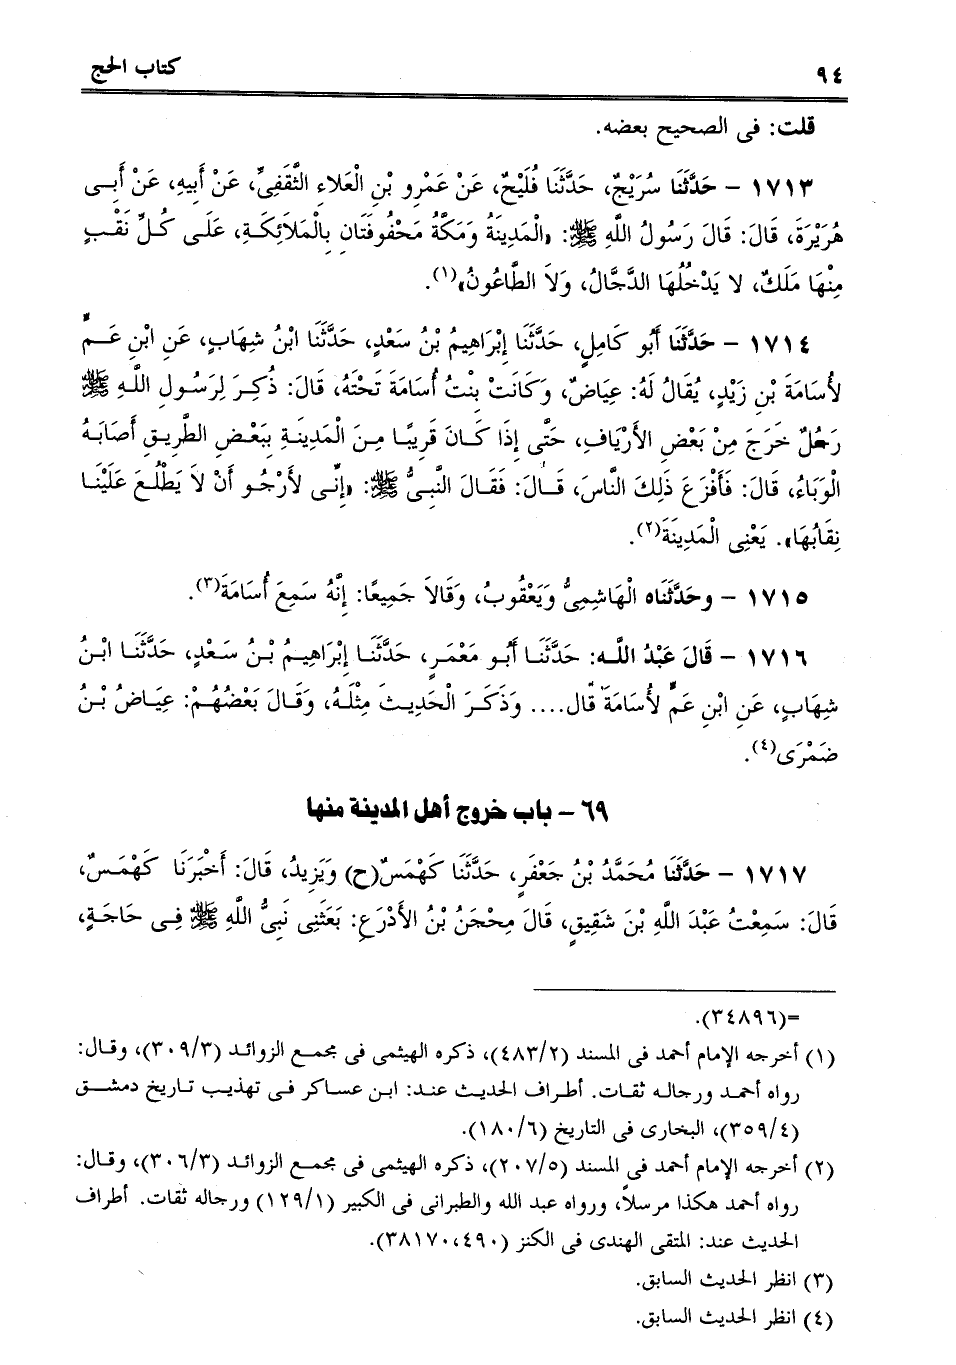 ٩٤
كتاب الحج
قلت: فى الصحيح بعضه.
١٧١٣ - حَدَّثَنَا سُرَيْجٌ، حَدَّثَنَا فُلَيْحٌ، عَنْ عَمْرِو بْنِ الْعَلاءِ الثَّقَفِىِّ، عَنْ أَبِيهِ، عَنْ أَبِى
هُرَيْرَةَ، قَالَ: قَالَ رَسُولُ اللَّهِ ﷺ: «الْمَدِينَةُ وَمَكَّةُ مَحْفُوفَتَانِ بِالْمَلاَئِكَةِ، عَلَى كُلِّ نَقْبٍ
مِنْهَا مَلَكٌ، لا يَدْخُلُهَا الدَّجَّالُ، وَلاَ الطَّاعُونُ»(١).
١٧١٤ - حَدَّثَنَا أَبُو كَامِلٍ، حَدَّثَنَا إِبْرَاهِيمُ بْنُ سَعْدٍ، حَدَّثَنَا ابْنُ شِهَابٍ، عَنِ ابْنِ عَمٍّ
لأُسَامَةَ بْنِ زَيْدٍ، يُقَالُ لَهُ: عِيَاضٌ، وَكَانَتْ بِنْتُ أُسَامَةَ تَحْتَهُ، قَالَ: ذُكِرَ لِرَسُولِ اللَّهِ ﷺ
رَجُلٌ خَرَجَ مِنْ بَعْضِ الأَرْيَافِ، حَتَّى إِذَا كَانَ قَرِيبًا مِنَ الْمَدِينَةِ بِبَعْضِ الطَّرِيقِ أَصَابَهُ
الْوَبَاءُ، قَالَ: فَأَفْزَعَ ذَلِكَ النَّاسَ، قَالَ: فَقَالَ النَّبِىُّ ﷺ: «إِنِّى لأَرْجُو أَنْ لاَ يَطْلُعَ عَلَيْنَا
نِقَابُهَا». يَعْنِى الْمَدِينَةَ(٢).
١٧١٥ - وحَدَّثَنَاه الْهَاشِمِىُّ وَيَعْقُوبُ، وَقَالاَ جَمِيعًا: إِنَّهُ سَمِعَ أُسَامَةَ(٣).
١٧١٦ - قَالَ عَبْدُ اللَّه: حَدَّثَنَا أَبُو مَعْمَرٍ، حَدَّثَنَا إِبْرَاهِيمُ بْنُ سَعْدٍ، حَدَّثَنَا ابْنُ
شِهَابٍ، عَنِ ابْنِ عَمٍّ لأُسَامَةَ قَال.... وَذَكَرَ الْحَدِيثَ مِثْلَهُ، وَقَالَ بَعْضُهُمْ: عِيَاضُ بْنُ
ضَمْرَى(٤).
٦٩ - باب خروج أهل المدينة منها
١٧١٧ - حَدَّثَنَا مُحَمَّدُ بْنُ جَعْفَرٍ، حَدَّثَنَا كَهْمَسٌ(ح) وَيَزِيدُ، قَالَ: أَخْبَرَنَا كَهْمَسٌ،
قَالَ: سَمِعْتُ عَبْدَ اللَّهِ بْنَ شَقِيقٍ، قَالَ مِحْجَنُ بْنُ الأَدْرَعِ: بَعَثَنِى نَبِىُّ اللَّهِ ﷺ فِى حَاجَةٍ،
=(٣٤٨٩٦).
(١) أخرجه الإمام أحمد فى المسند (٤٨٣/٢)، ذكره الهيثمى فى مجمع الزوائد (٣٠٩/٣)، وقال:
رواه أحمد ورجاله ثقات. أطراف الحديث عند: ابن عساكر فى تهذيب تاريخ دمشق
(٣٥٩/٤)، البخارى فى التاريخ (١٨٠/٦).
(٢) أخرجه الإمام أحمد فى المسند (٢٠٧/٥)، ذكره الهيثمى فى مجمع الزوائد (٣٠٦/٣)، وقال:
رواه أحمد هكذا مرسلاً، ورواه عبد الله والطبرانى فى الكبير (١٢٩/١) ورجاله ثقات. أطراف
الحديث عند: المتقى الهندى فى الكنز (٤٩٠، ٣٨١٧٠).
(٣) انظر الحديث السابق.
(٤) انظر الحديث السابق.